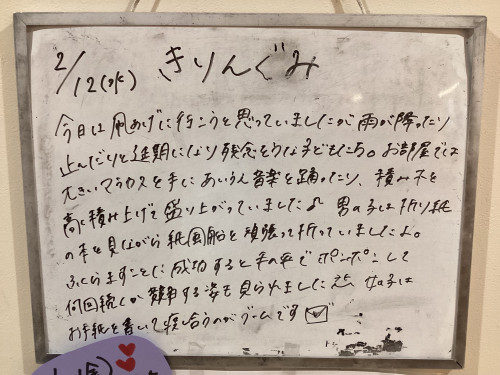 2/12(水) きりんぐみ
今日は凧あげに行こうと思っていましたが雨が降ったり
止んだりと延期になり残念そうな子どもたち。お部屋では
大きいマラカスを手に あいうえ音楽を踊ったり、積み木を
高く積み上げて盛り上がっていました♪ 男の子は折り紙
の本を見ながら紙風船を頑張って折っていましたよ。
ふくらますことに成功すると手の平でポンポンして
何回続くか競争する姿も見られました 女の子は
お手紙を書いて渡し合うのがブームです